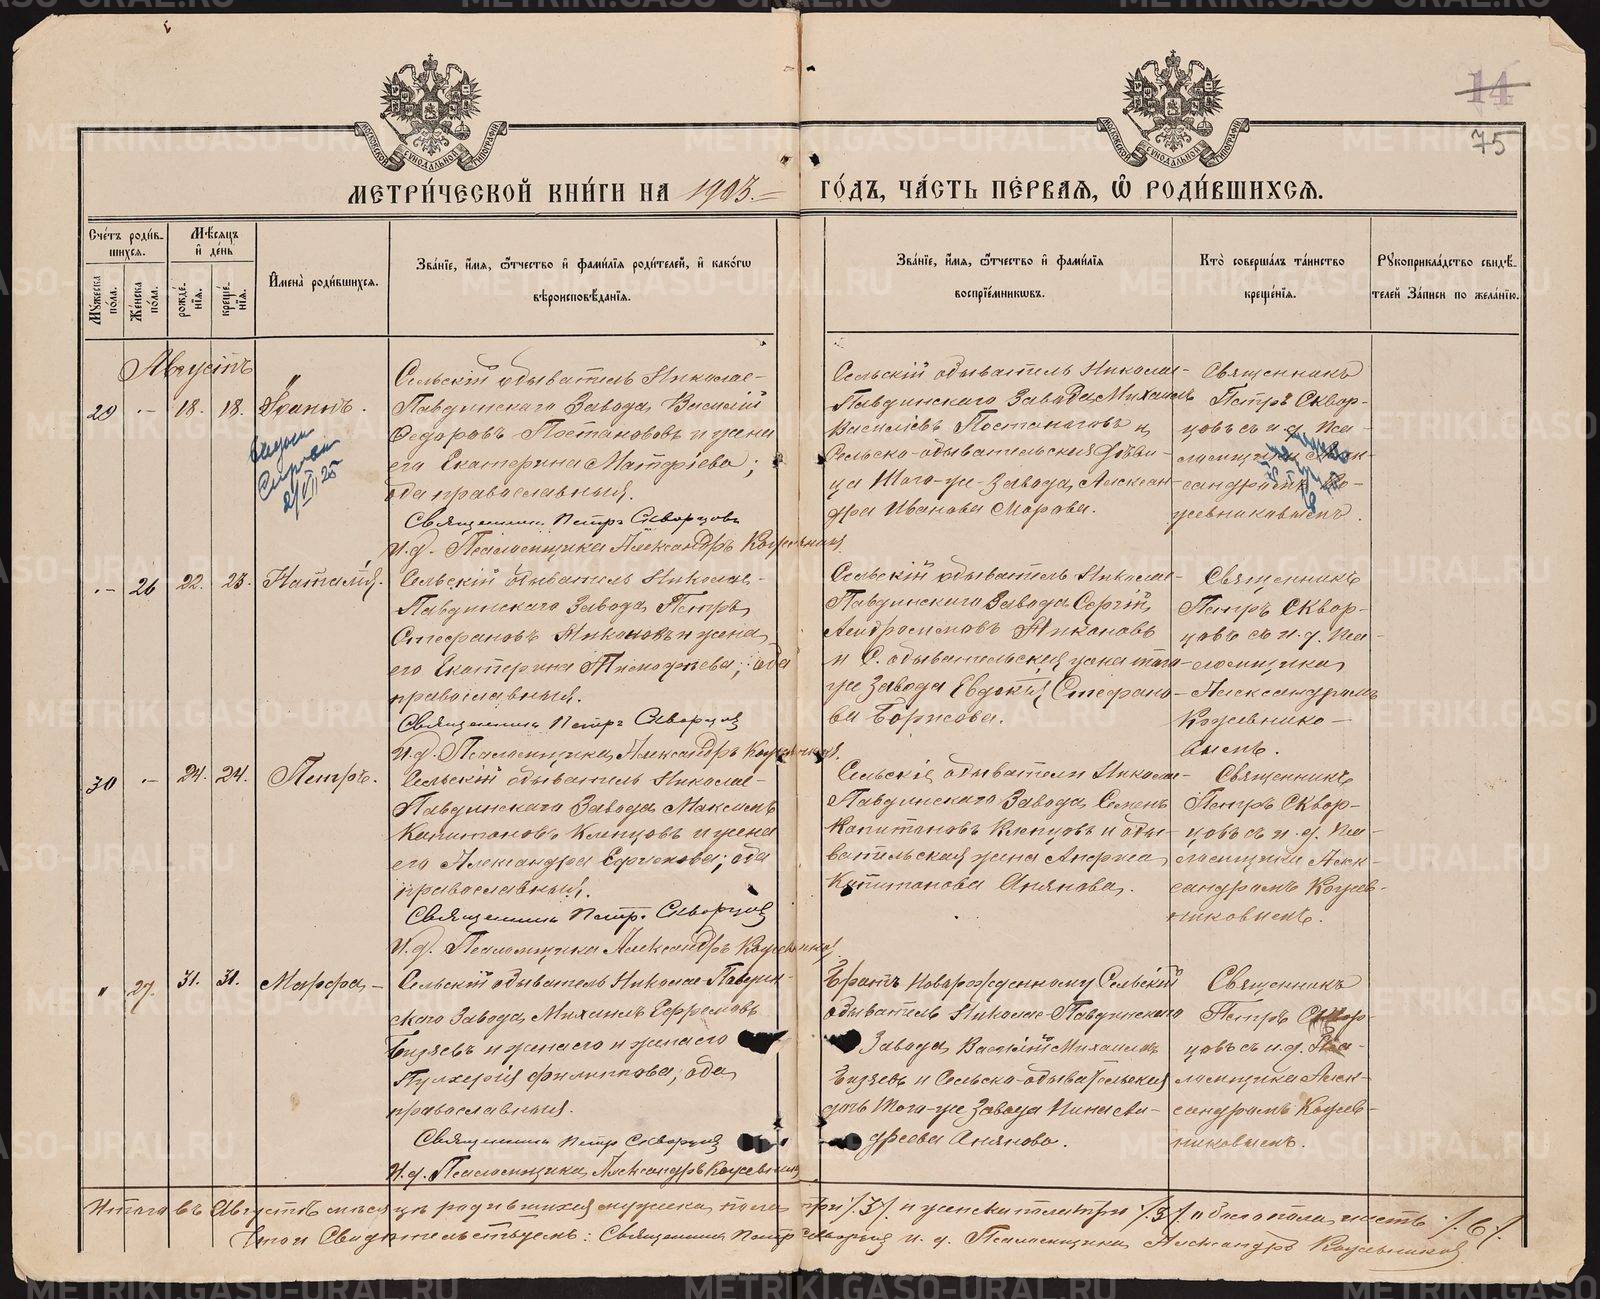 14
75
МЕТРИ́ЧЕСКОЙ КНИ́ГИ НА 1903. ГО́ДЪ, ЧА́СТЬ ПЕ́РВАЯ, Ѡ РОДИ́ВШИХСЯ.
Сче́тъ роди́в-
шихся.
Му́жеска
по́ла.
Же́нска
по́ла.
Мѣ́сяцъ
и де́нь
рожде́-
нія.
креще́-
нія.
Имена̀ роди́вшихся.
Зва́ніе, и́мя, ѻ́тчество и фами́лія роди́телей, и како́гѡ
вѣроисповѣ́данія.
Зва́ніе, и́мя, ѻ́тчество и фами́лія
воспріе́мникѡвъ.
Кто̀ соверша́лъ та́инство
креще́нія.
Рꙋкоприкла́дство свидѣ́-
телей За́писи по жела́нію.
Августъ
29 - 18. 18. Іоаннъ.
Сельскій обыватель Николае-
Павдинскаго Завода, Василій
Ѳедоровъ Постаноговъ и жена
его Екатерина Матфіева;
оба православныя.
Священникъ Петръ Скворцовъ
И.д. Псаломщика Александръ Кожевников
Сельскій обыватель Николае-
Павдинскаго Завода Михаилъ
Василіевъ Постаноговъ и
Сельско-обывательская дѣви-
ца того-же Завода, Алексан-
дра Иванова Морова.
Священникъ
Петръ Сквор-
цовъ съ и.д. Пса-
ломщика Алек-
сандромъ Ко-
жевниковымъ.
- 26 22. 23. Наталія.
Сельскій обыватель Николае-
Павдинскаго Завода, Петръ
Стефановъ Никоновъ и жена
его Екатерина Тимофѣева; оба
православныя.
Священникъ Петръ Скворцов
И.д. Псаломщика, Александръ Кожевников.
Сельскій обыватель Николае-
Павдинскаго Завода Сергій
Никоновъ
и С. обывательская жена того-
же Завода Евдокія Стефано-
ва Борисова.
Священникъ
Петръ Сквор-
цовъ съ и.д. Пса-
ломщика,
Александромъ
Кожевнико-
вымъ.
30 - 24. 24. Петръ.
Сельскій обыватель Николае-
Павдинскаго Завода, Максимъ
Капитоновъ Клепцовъ и жена
его Александра Ефимова; оба
православныя.
Священникъ Петръ Скворцов
И.д. Псаломщика Александръ Кожевников
Сельскіе обыватели Николае-
Павдинскаго Завода, Семенъ
Капитоновъ Клепцовъ и обы-
вательская жена
Капитонова Анянова.
Священникъ
Петръ Сквор-
цовъ съ и.д. Пса-
ломщика Алек-
сандромъ Кожев-
никовымъ.
" 27. 31. 31. Марфа,
Сельскій обыватель Николае-Павдин-
скаго Завода, Михаилъ Ефремовъ
Бизяевъ и жена его и жена его
Пулхерія Филиппова; оба
православныя.
Священникъ Петръ Скворцов
И.д. Псаломщика, Александръ Кожевников
Братъ Новорожденному Сельскій
обыватель Николае-Павдинскаго
Завода, Василій Михаиловъ
Бизяевъ и Сельско-обывательская
дочь того-же Завода Нина
Анянова.
Священникъ
Петръ Сквор-
цовъ съ и.д. Пса-
ломщика Алек-
сандромъ Кожев-
никовымъ.
Итого въ Августѣ мѣсяцѣ родившихся мужска пола три /3/ и женска пола три /3/ а обоего пола шесть /6/.
Въ томъ Свидѣтельствуемъ: Священникъ Петръ Скворцов и. д. Псаломщика, Александръ Кожевников
METRIKI.GASO-URAL.RU